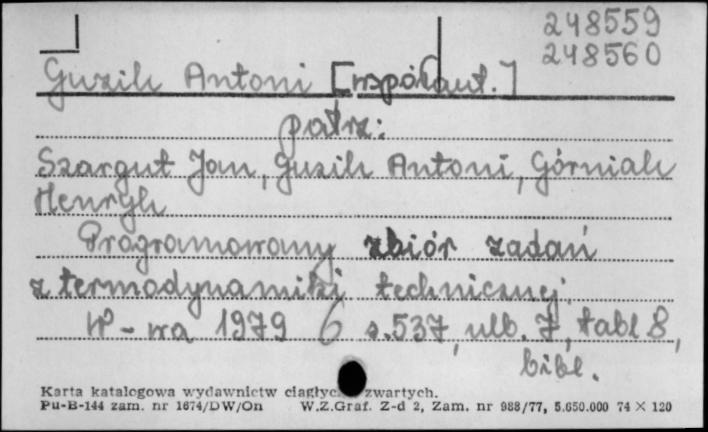 248559
248560
Guzik Antoni [współaut.]
patrz:
Szargut Jan, Guzik Antoni, Górniak
Henryk
Programowany zbiór zadań
z termodynamiki technicznej.
W-wa 1979 6 s.537, ulb. 7, tabl 8,
bibl.
Karta katalogowa wydawnictw ciągłych zwartych.
Pu-B-144 zam. nr 1674/DW/On W.Z.Graf. Z-d 2, Zam. nr 988/77, 5.650.000 74 × 120